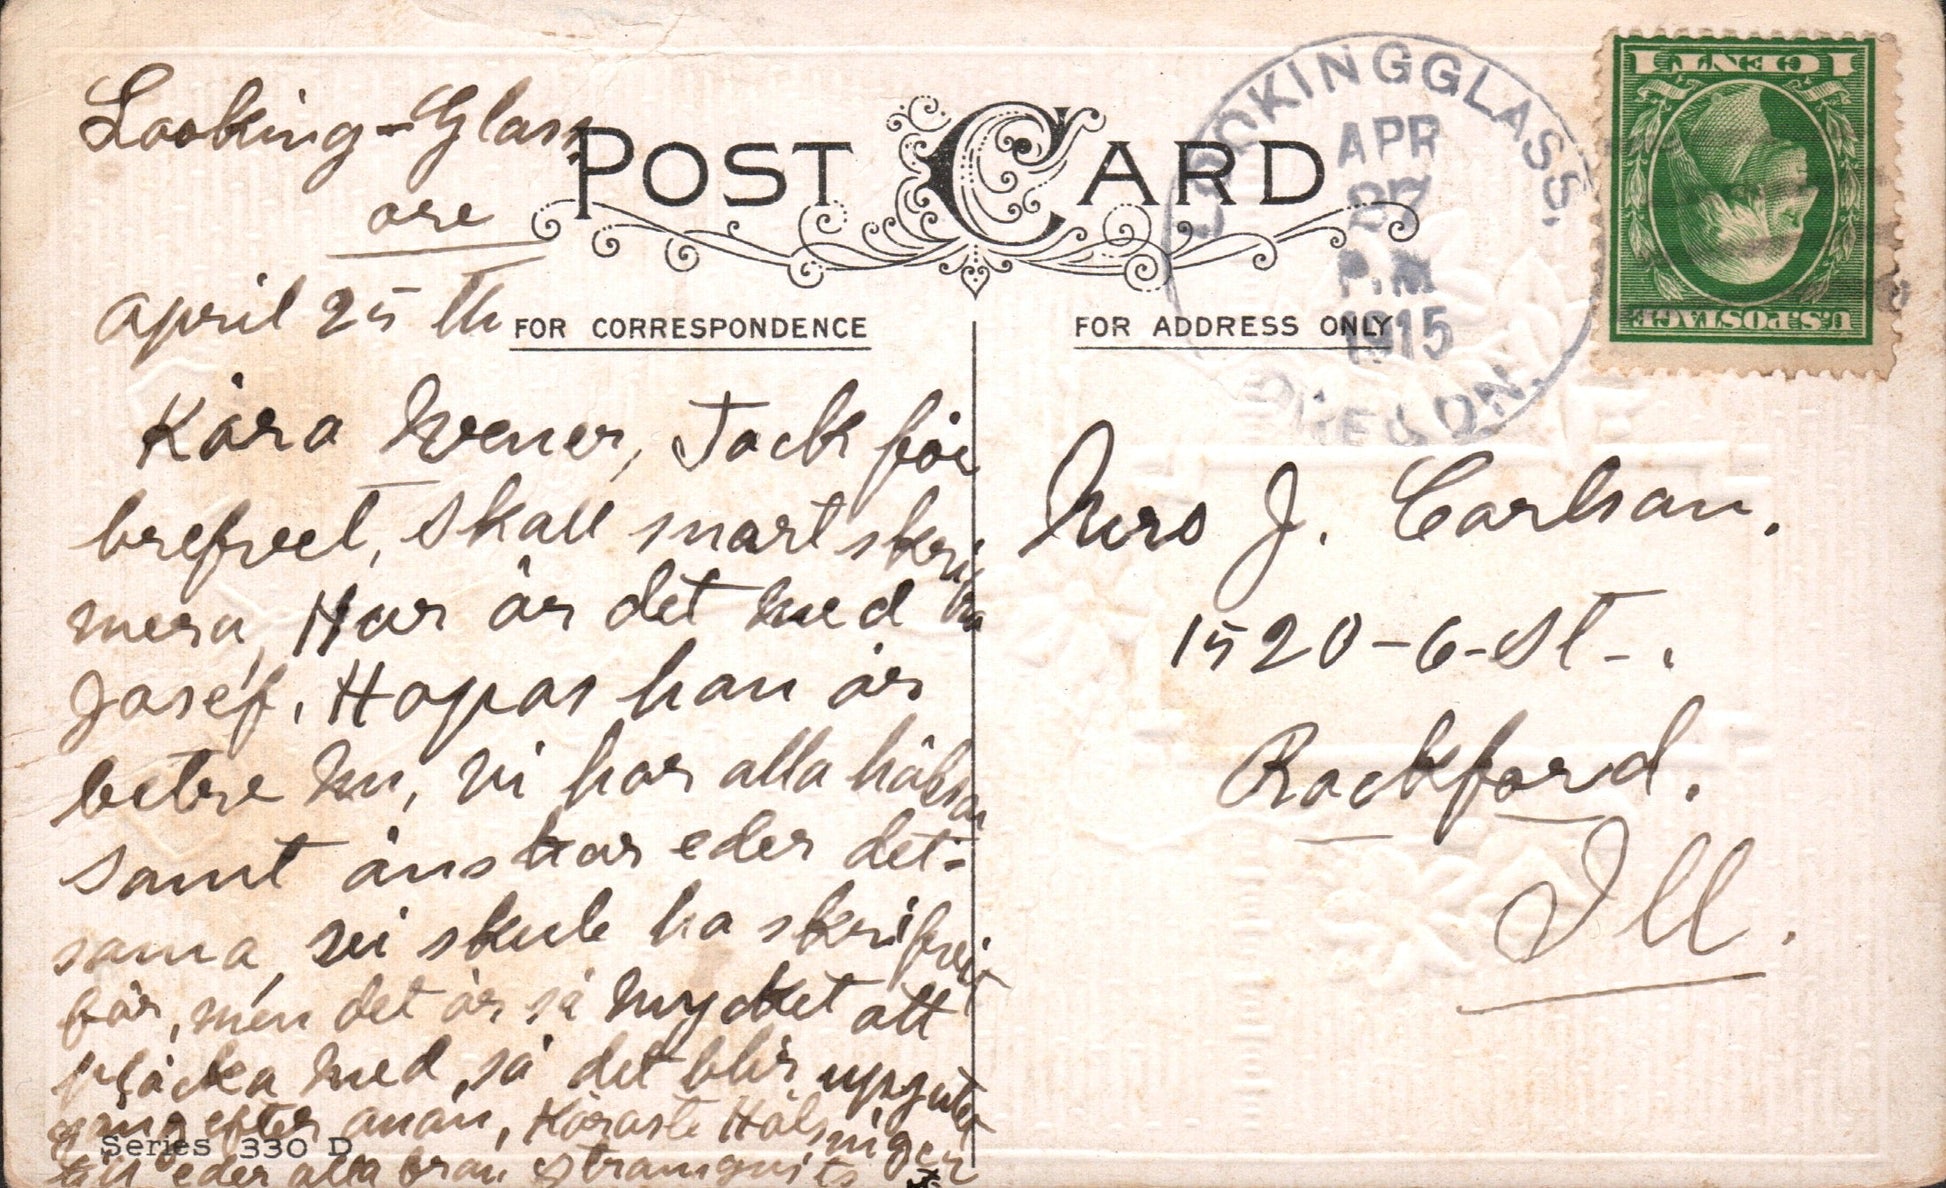 Looking-Glass
ore
april 25 th
POST CARD
FOR CORRESPONDENCE
Kära wener, Tack för
brefvet, skall snart skrifva
mera, Hur är det med
Josef, Hopas han är
betre nu, vi har alla hälsan
samt önskar eder det-
sama, vi skule ha skrifvit
för, men det är så mycket att
plåcka med, så det blir upsjutet
gång efter anan, Käraste Hälsningar
till eder alla från
Series 330 D
FOR ADDRESS ONLY
LOOKINGGLASS,
APR
27
P.M
1915
OREGON.
1 CENT 1
U.S. POSTAGE
Mrs J. Carlson.
1520-6-St-.
Rockford.
Ill.